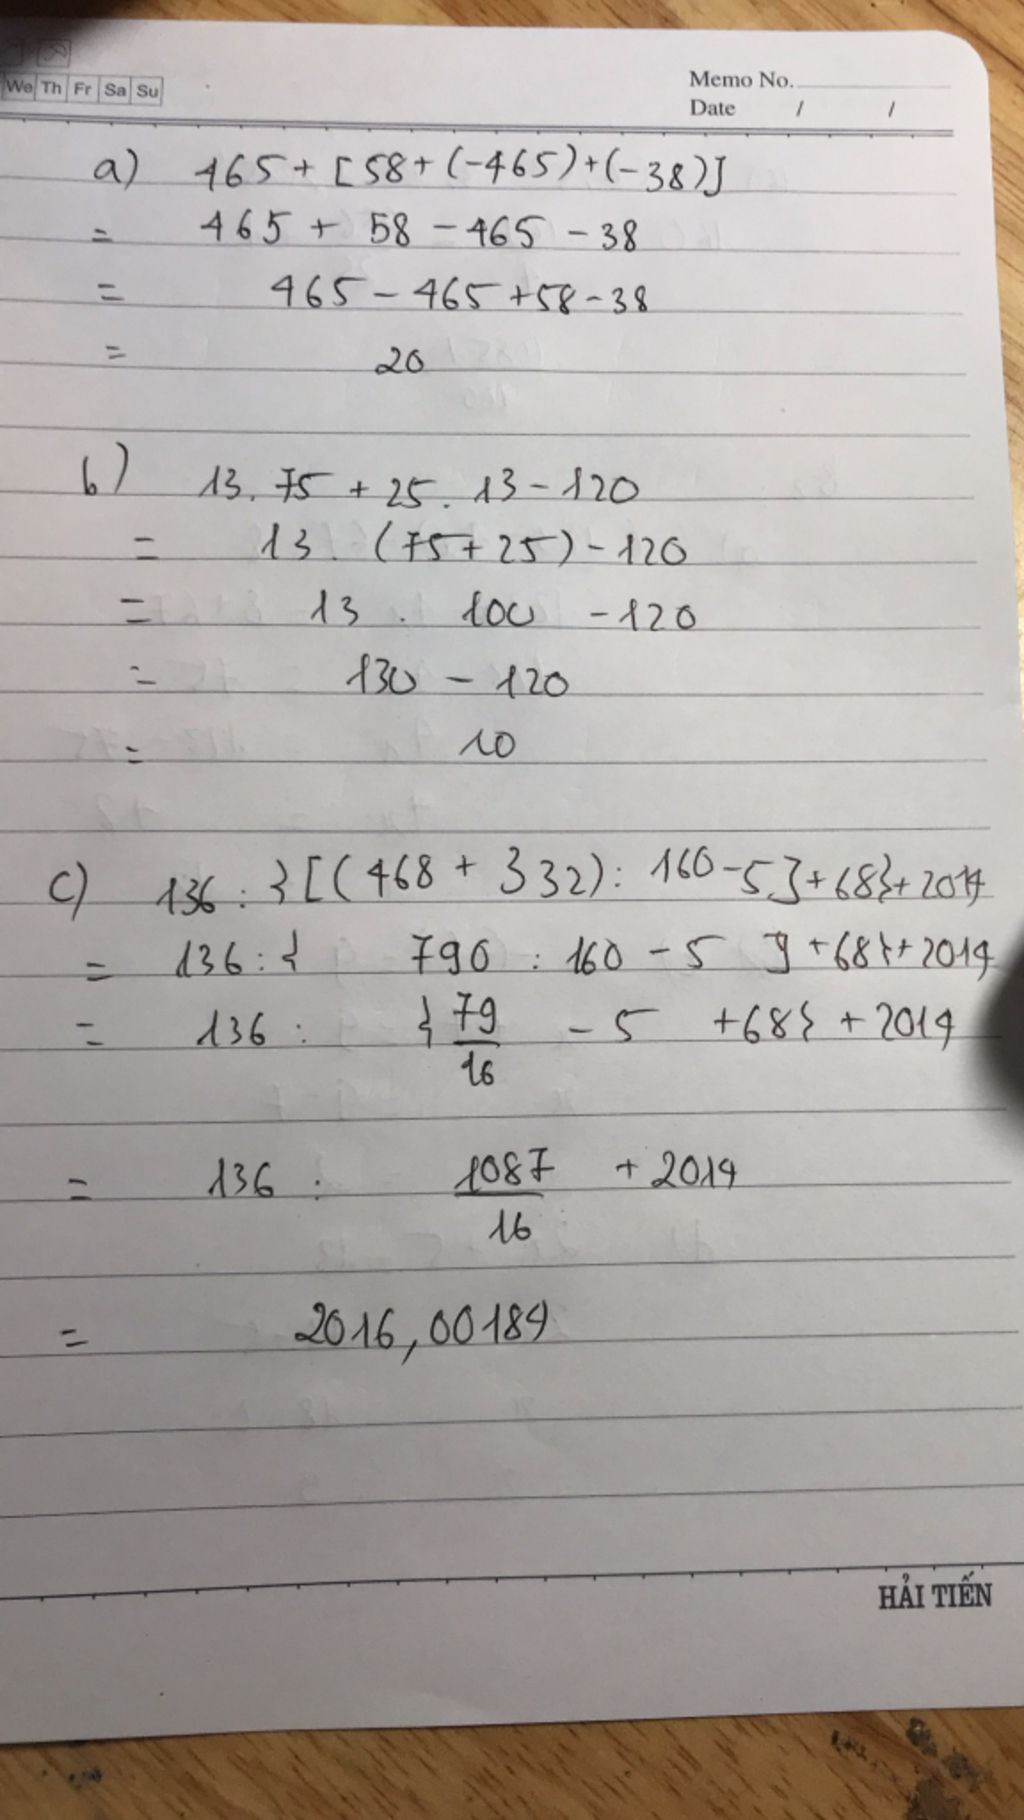 We Th Fr Sa Su
Memo No.
Date / /
a) 465 + [58 + (-465) + (-38)]
= 465 + 58 - 465 - 38
= 465 - 465 + 58 - 38
= 20
b) 13. 75 + 25. 13 - 120
= 13. (75 + 25) - 120
= 13 . 100 - 120
= 130 - 120
= 10
c) 136 : {[(468 + 332) : 160 - 5] + 68} + 2014
= 136 : { 790 : 160 - 5 ] + 68} + 2014
= 136 : { 79/16 - 5 + 68} + 2014
= 136 : 1087/16 + 2014
= 2016,00184
HẢI TIẾN